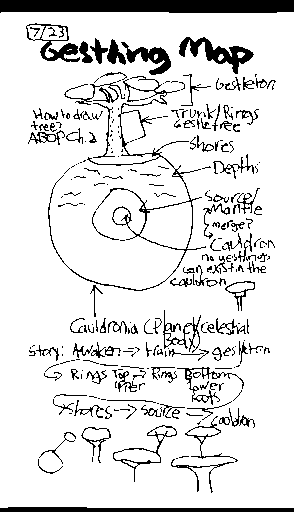 7/23
Gestling Map
Gestleton
How to draw
tree?
ABOP Ch.2
Trunk/Rings
Gestletree
Shores
Depths
Source/
Mantle
merge?
Cauldron
no gestlings
can exist in the
cauldron
Cauldronia (Planet/celestial
Body)
Story: Awaken → train → gestleton
→ Rings Top → Rings Bottom
upper lower
roots
→ shores → source → cauldron